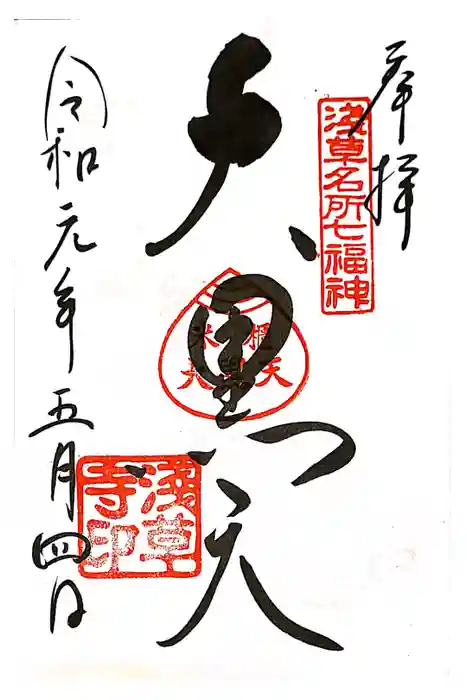 奉拝
浅草名所七福神
大黒天
浅草
寺印
令和元年五月四日